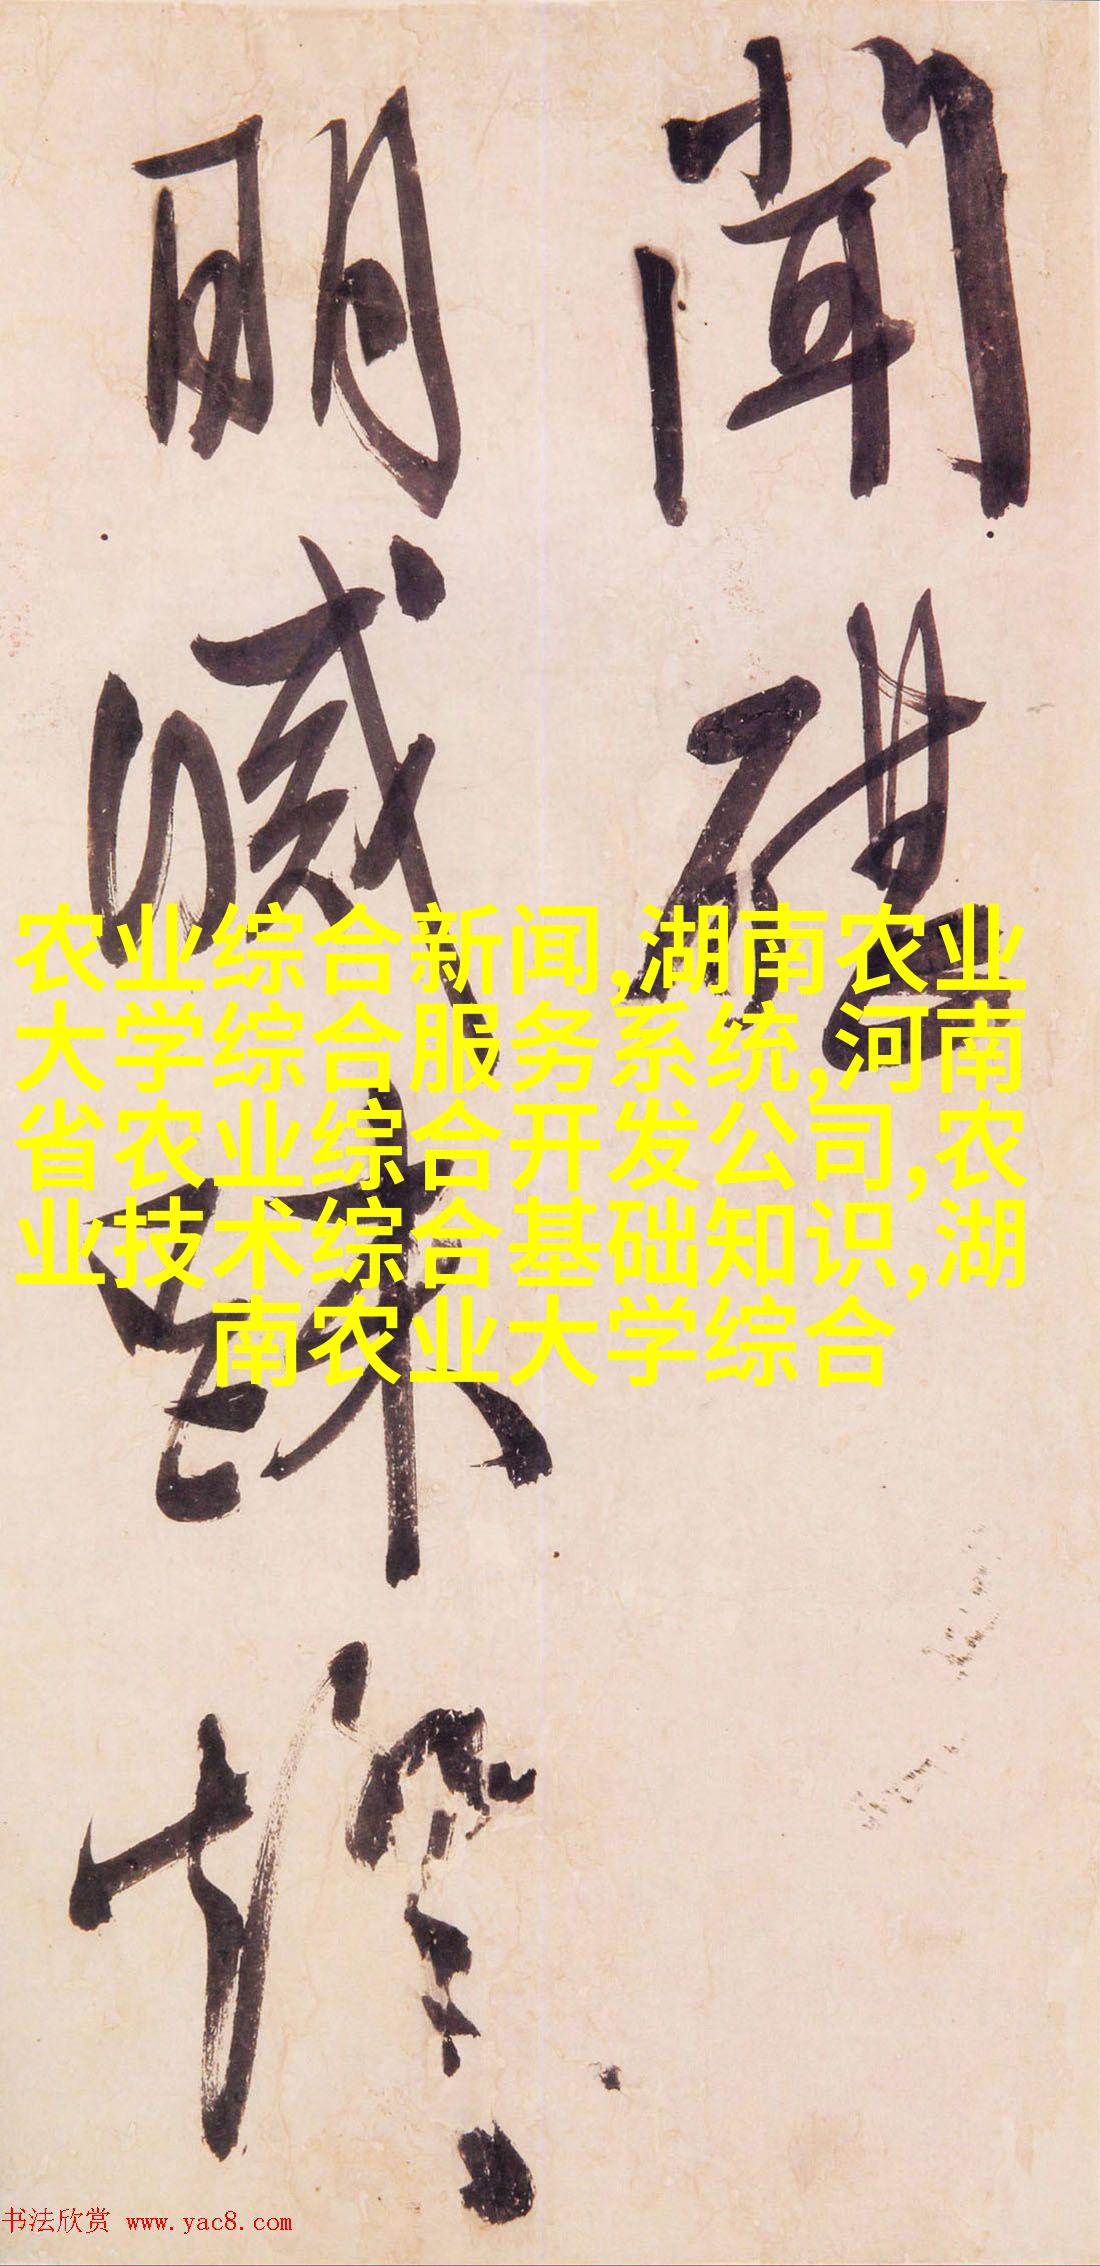 聞碪
明滅踈燈
农业综合新闻,湖南农业
大学综合服务系统,河南
省农业综合开发公司,农
业技术综合基础知识,湖
南农业大学综合
书法欣赏 www.yac8.com